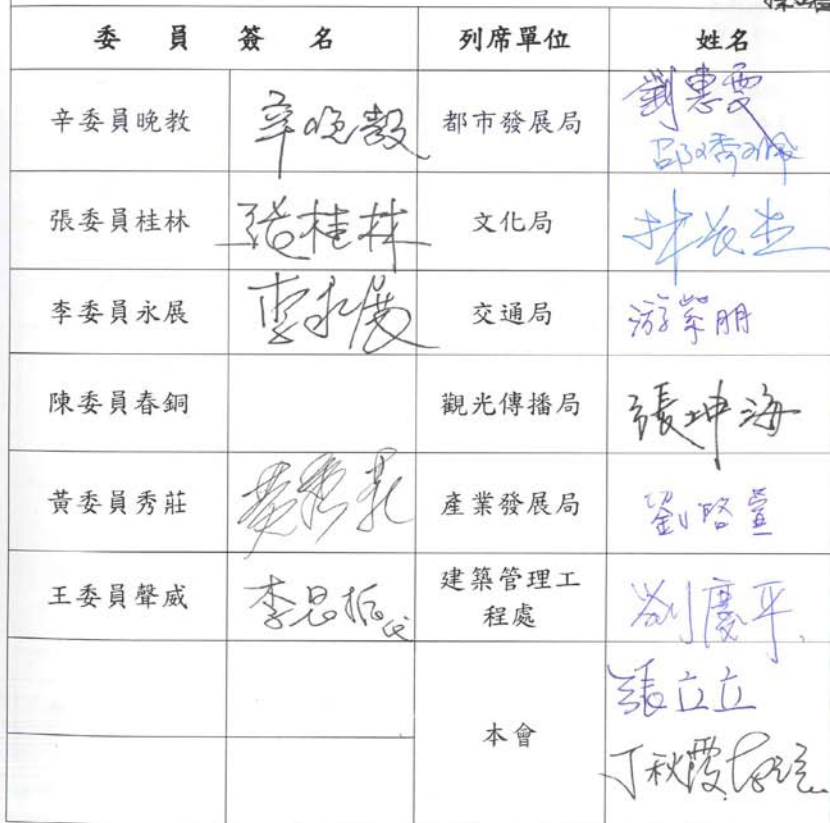 委員簽名 列席單位 姓名
辛委員晚教 辛晚教 都市發展局 劉惠雯
邵琇珮
張委員桂林 張桂林 文化局 林
李委員永展 李永展 交通局 游紫明
陳委員春銅 觀光傳播局 張坤海
黃委員秀莊 黃秀莊 產業發展局 劉啓萱
王委員聲威 李思 代 建築管理工
程處 劉慶平
本會 張立立
丁秋霞